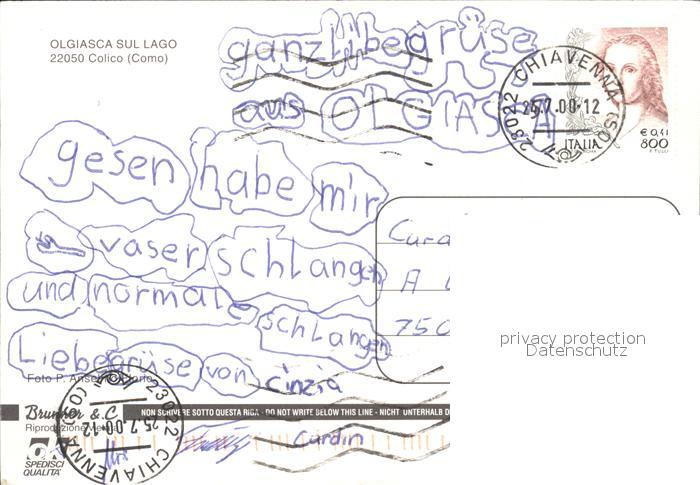 OLGIASCA SUL LAGO
22050 Colico (Como)
ganz libe grüse
aus OLGIASCA
gesen habe mir
vaser schlangen
und normale
schlangen
Liebe grüse von Cinzia
23022 CHIAVENNA (SO)
25.7.00-12
ITALIA
€ 0,41
800
A
750
privacy protection
Datenschutz
Foto P.
Brunner & C.
Riproduzione
NON SCRIVERE SOTTO QUESTA RIGA - DO NOT WRITE BELOW THIS LINE - NICHT UNTERHALB D
SPEDISCI
QUALITÀ
23022 CHIAVENNA (SO)
25.7.00-12